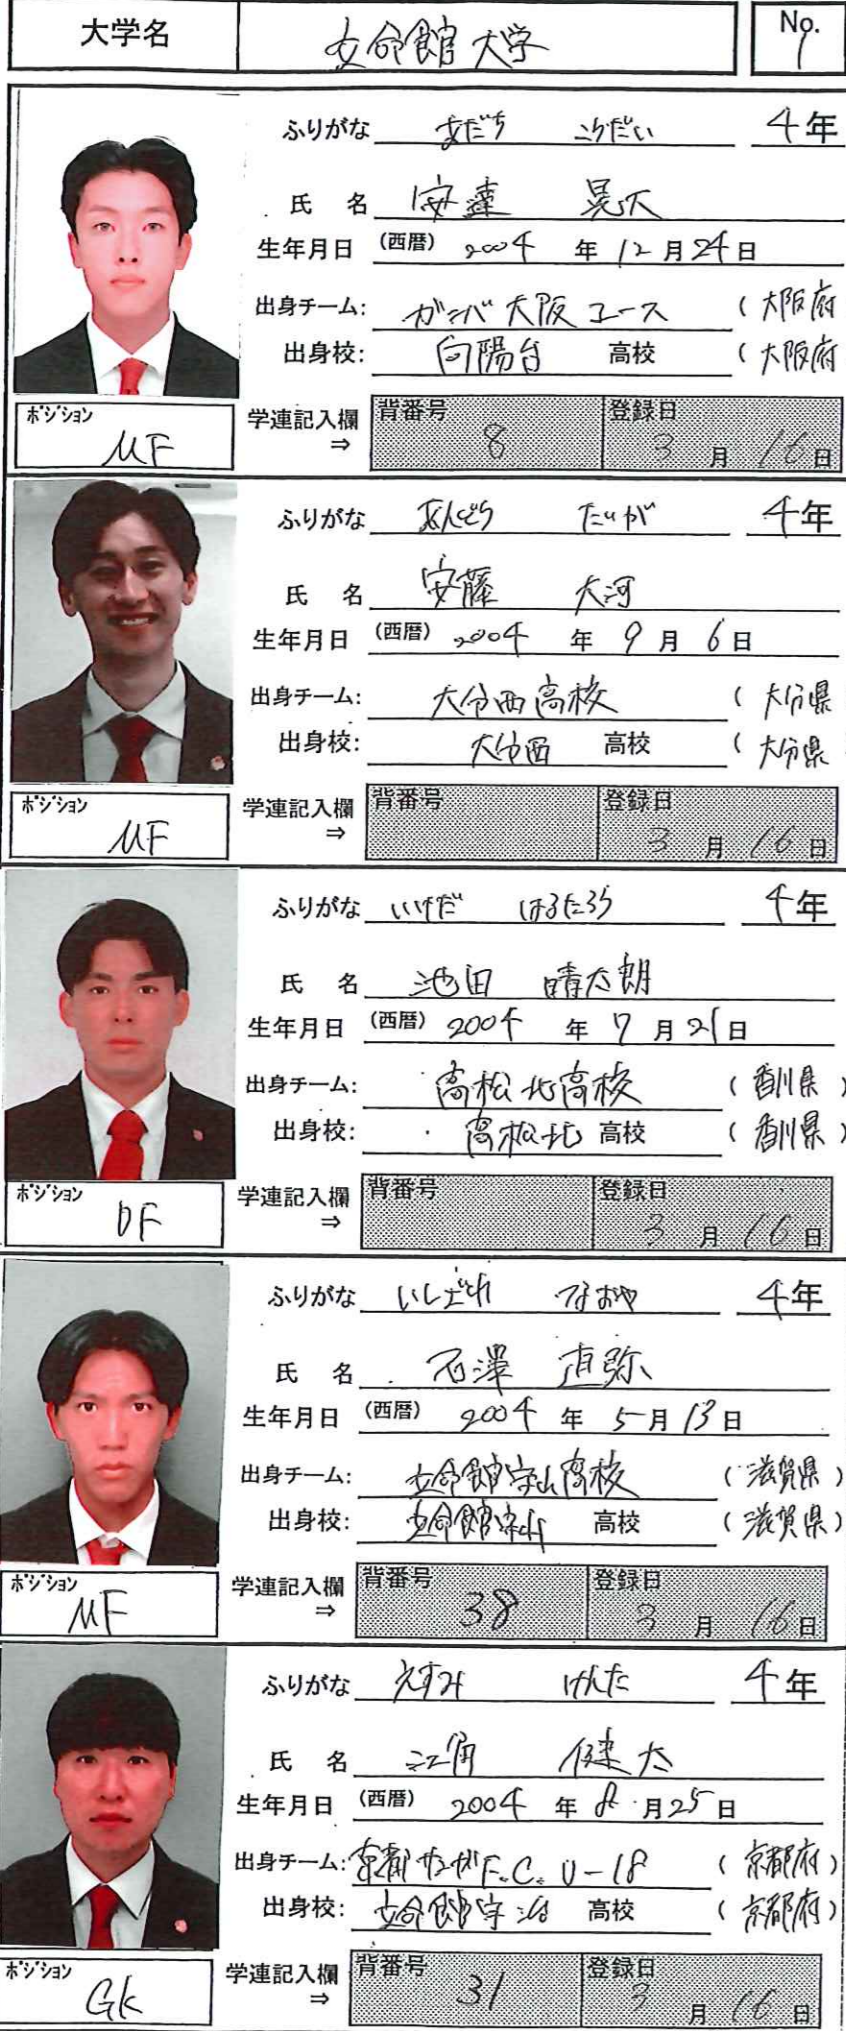 大学名 立命館大学 No. 1
ふりがな あだち こうだい 4年
氏名 安達 晃大
生年月日 (西暦) 2004 年 12 月 24 日
出身チーム: ガンバ大阪ユース (大阪府
出身校: 向陽台 高校 (大阪府
ポジション MF 学連記入欄 ⇒ 背番号 8 登録日 3 月 16 日
ふりがな あんどう たいが 4年
氏名 安藤 大河
生年月日 (西暦) 2004 年 9 月 6 日
出身チーム: 大分西高校 (大分県
出身校: 大分西 高校 (大分県
ポジション MF 学連記入欄 ⇒ 背番号 登録日 3 月 16 日
ふりがな いけだ はるたろう 4年
氏名 池田 晴太朗
生年月日 (西暦) 2004 年 7 月 21 日
出身チーム: 高松北高校 (香川県)
出身校: 高松北 高校 (香川県)
ポジション DF 学連記入欄 ⇒ 背番号 登録日 3 月 16 日
ふりがな なおや 4年
氏名 石澤 直弥
生年月日 (西暦) 2004 年 5 月 13 日
出身チーム: 立命館守山高校 (滋賀県)
出身校: 立命館守山 高校 (滋賀県)
ポジション MF 学連記入欄 ⇒ 背番号 38 登録日 3 月 16 日
ふりがな えすみ けんた 4年
氏名 江角 健太
生年月日 (西暦) 2004 年 8 月 25 日
出身チーム: 京都サンガF.C. U-18 (京都府)
出身校: 立命館宇治 高校 (京都府)
ポジション GK 学連記入欄 ⇒ 背番号 31 登録日 3 月 16 日